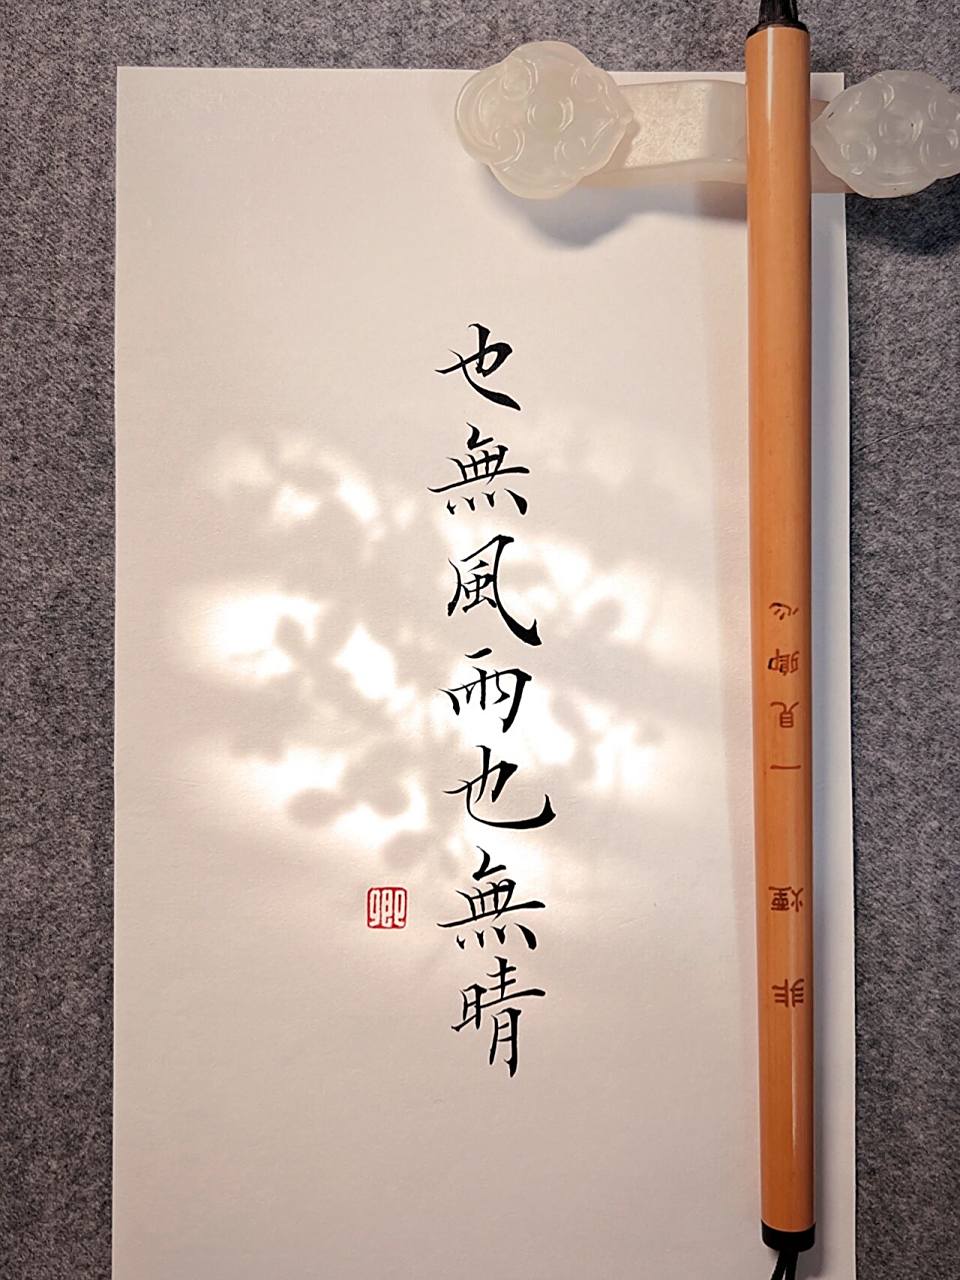 也無風雨也無晴
卿
非煙 一見卿心